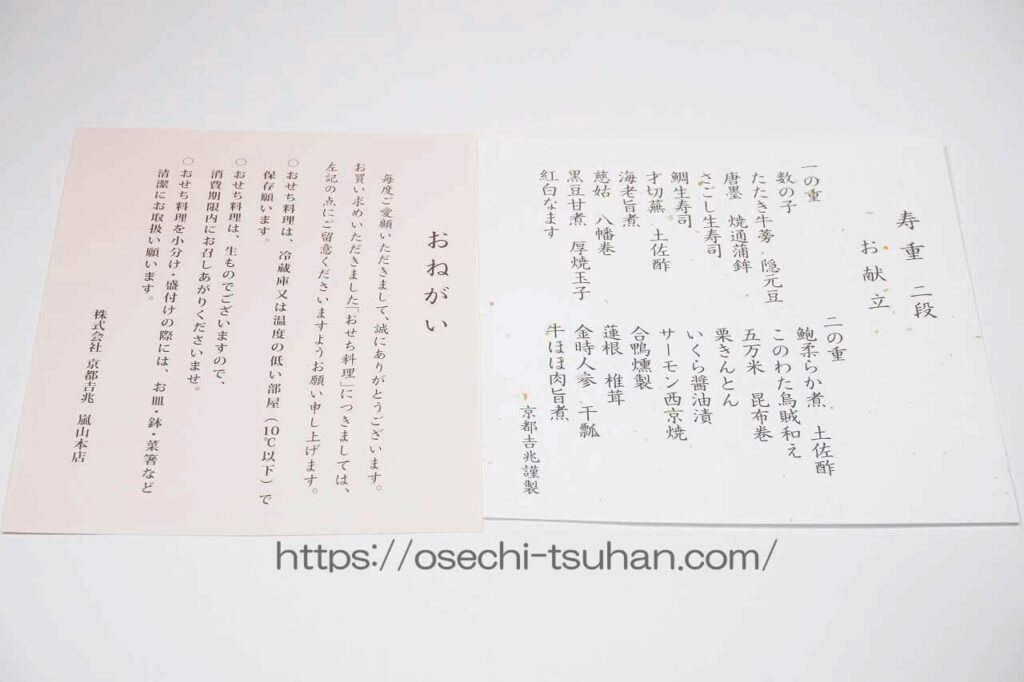 寿重 二段
お献立
一の重
数の子
たたき牛蒡 隠元豆
唐墨 焼通蒲鉾
さごし生寿司
鯛生寿司
才切蕪 土佐酢
海老旨煮
慈姑 八幡巻
黒豆甘煮 厚焼玉子
紅白なます
二の重
鮑柔らか煮 土佐酢
このわた烏賊和え
五万米 昆布巻
栗きんとん
いくら醤油漬
サーモン西京焼
合鴨燻製
蓮根 椎茸
金時人参 干瓢
牛ほほ肉旨煮
京都𠮷兆謹製
おねがい
毎度ご愛顧いただきまして、誠にありがとうございます。
お買い求めいただきました「おせち料理」につきましては、
左記の点にご留意くださいますようお願い申し上げます。
○おせち料理は、冷蔵庫又は温度の低い部屋（10℃以下）で
保存願います。
○おせち料理は、生ものでございますので、
消費期限内にお召しあがりくださいませ。
○おせち料理を小分け・盛付けの際には、お皿・鉢・菜箸など
清潔にお取扱い願います。
株式会社 京都𠮷兆 嵐山本店
https://osechi-tsuhan.com/